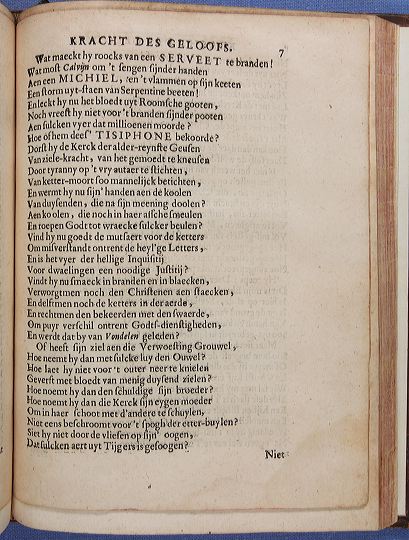 KRACHT DES GELOOFS. 7
Wat maeckt hy roocks van een SERVEET te branden!
Wat most Calvijn om 't sengen sijnder handen
Aen een MICHIEL, een 't vlammen op sijn keeten
Een storm uyt-staen van Serpentine beeten!
En leckt hy nu het bloedt uyt Roomsche gooten,
Noch vreeft hy niet voor 't branden sijnder pooten
Aen sulcken vyer dat millioenen moorde?
Hoe of hem dees' TISIPHONE bekoorde?
Dorst hy de Kerck der alder-reynste Geusen
Van ziele-kracht, van het gemoedt te kneusen
Door tyranny op 't vry autaer te stichten,
Van ketter-moort soo mannelijck berichten,
En wermt hy nu sijn' handen aen de koolen
Van duysenden, die na sijn meening doolen?
Aen koolen, die noch in haer assche smeulen
En roepen Godt tot wraecke sulcker beulen?
Vind hy nu goedt de mutsaert voor de ketters
Om misverstandt ontrent de heyl'ge Letters,
En is het vyer der hellige Inquisitij
Voor dwaelingen een noodige Justitij?
Vindt hy nu smaeck in branden en in blaecken,
Verworgtmen noch den Christenen aen staecken,
En delftmen noch de ketters in der aerde,
En rechtmen den bekeerden met den swaerde,
Om puyr verschil ontrent Godts-dienstigheden,
En werdt dat by van Vondelen geleden?
Of heeft sijn ziel aen die Verwoesting Grouwel,
Hoe neemt hy dan met sulcke luy den Ouwel?
Hoe laet hy niet voor 't outer neer te knielen
Geverft met bloedt van menig duysend zielen?
Hoe noemt hy dan den schuldige sijn broeder?
Hoe noemt hy dan die Kerck sijn eygen moeder
Om in haer schoot met d'andere te schuylen,
Niet eens beschroomt voor 't spogh der etter-buylen?
Siet hy niet door de vliesen op sijn' oogen,
Dat sulcken aert uyt Tijgers is gesoogen?
Niet